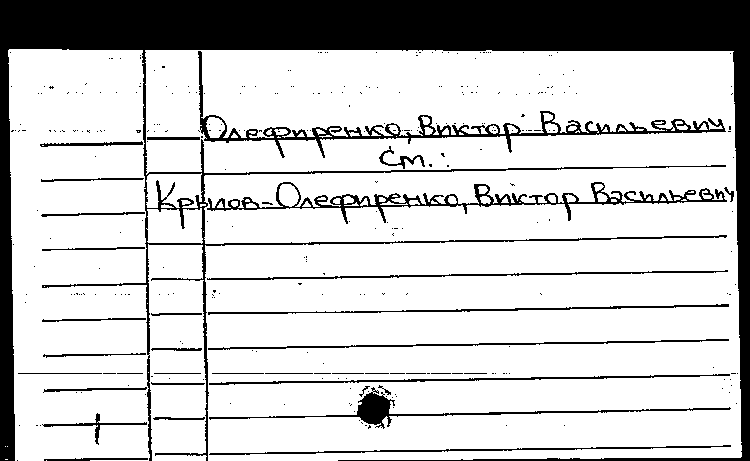 Олефиренко, Виктор Васильевич.
См.:
Крылов-Олефиренко, Виктор Васильевич